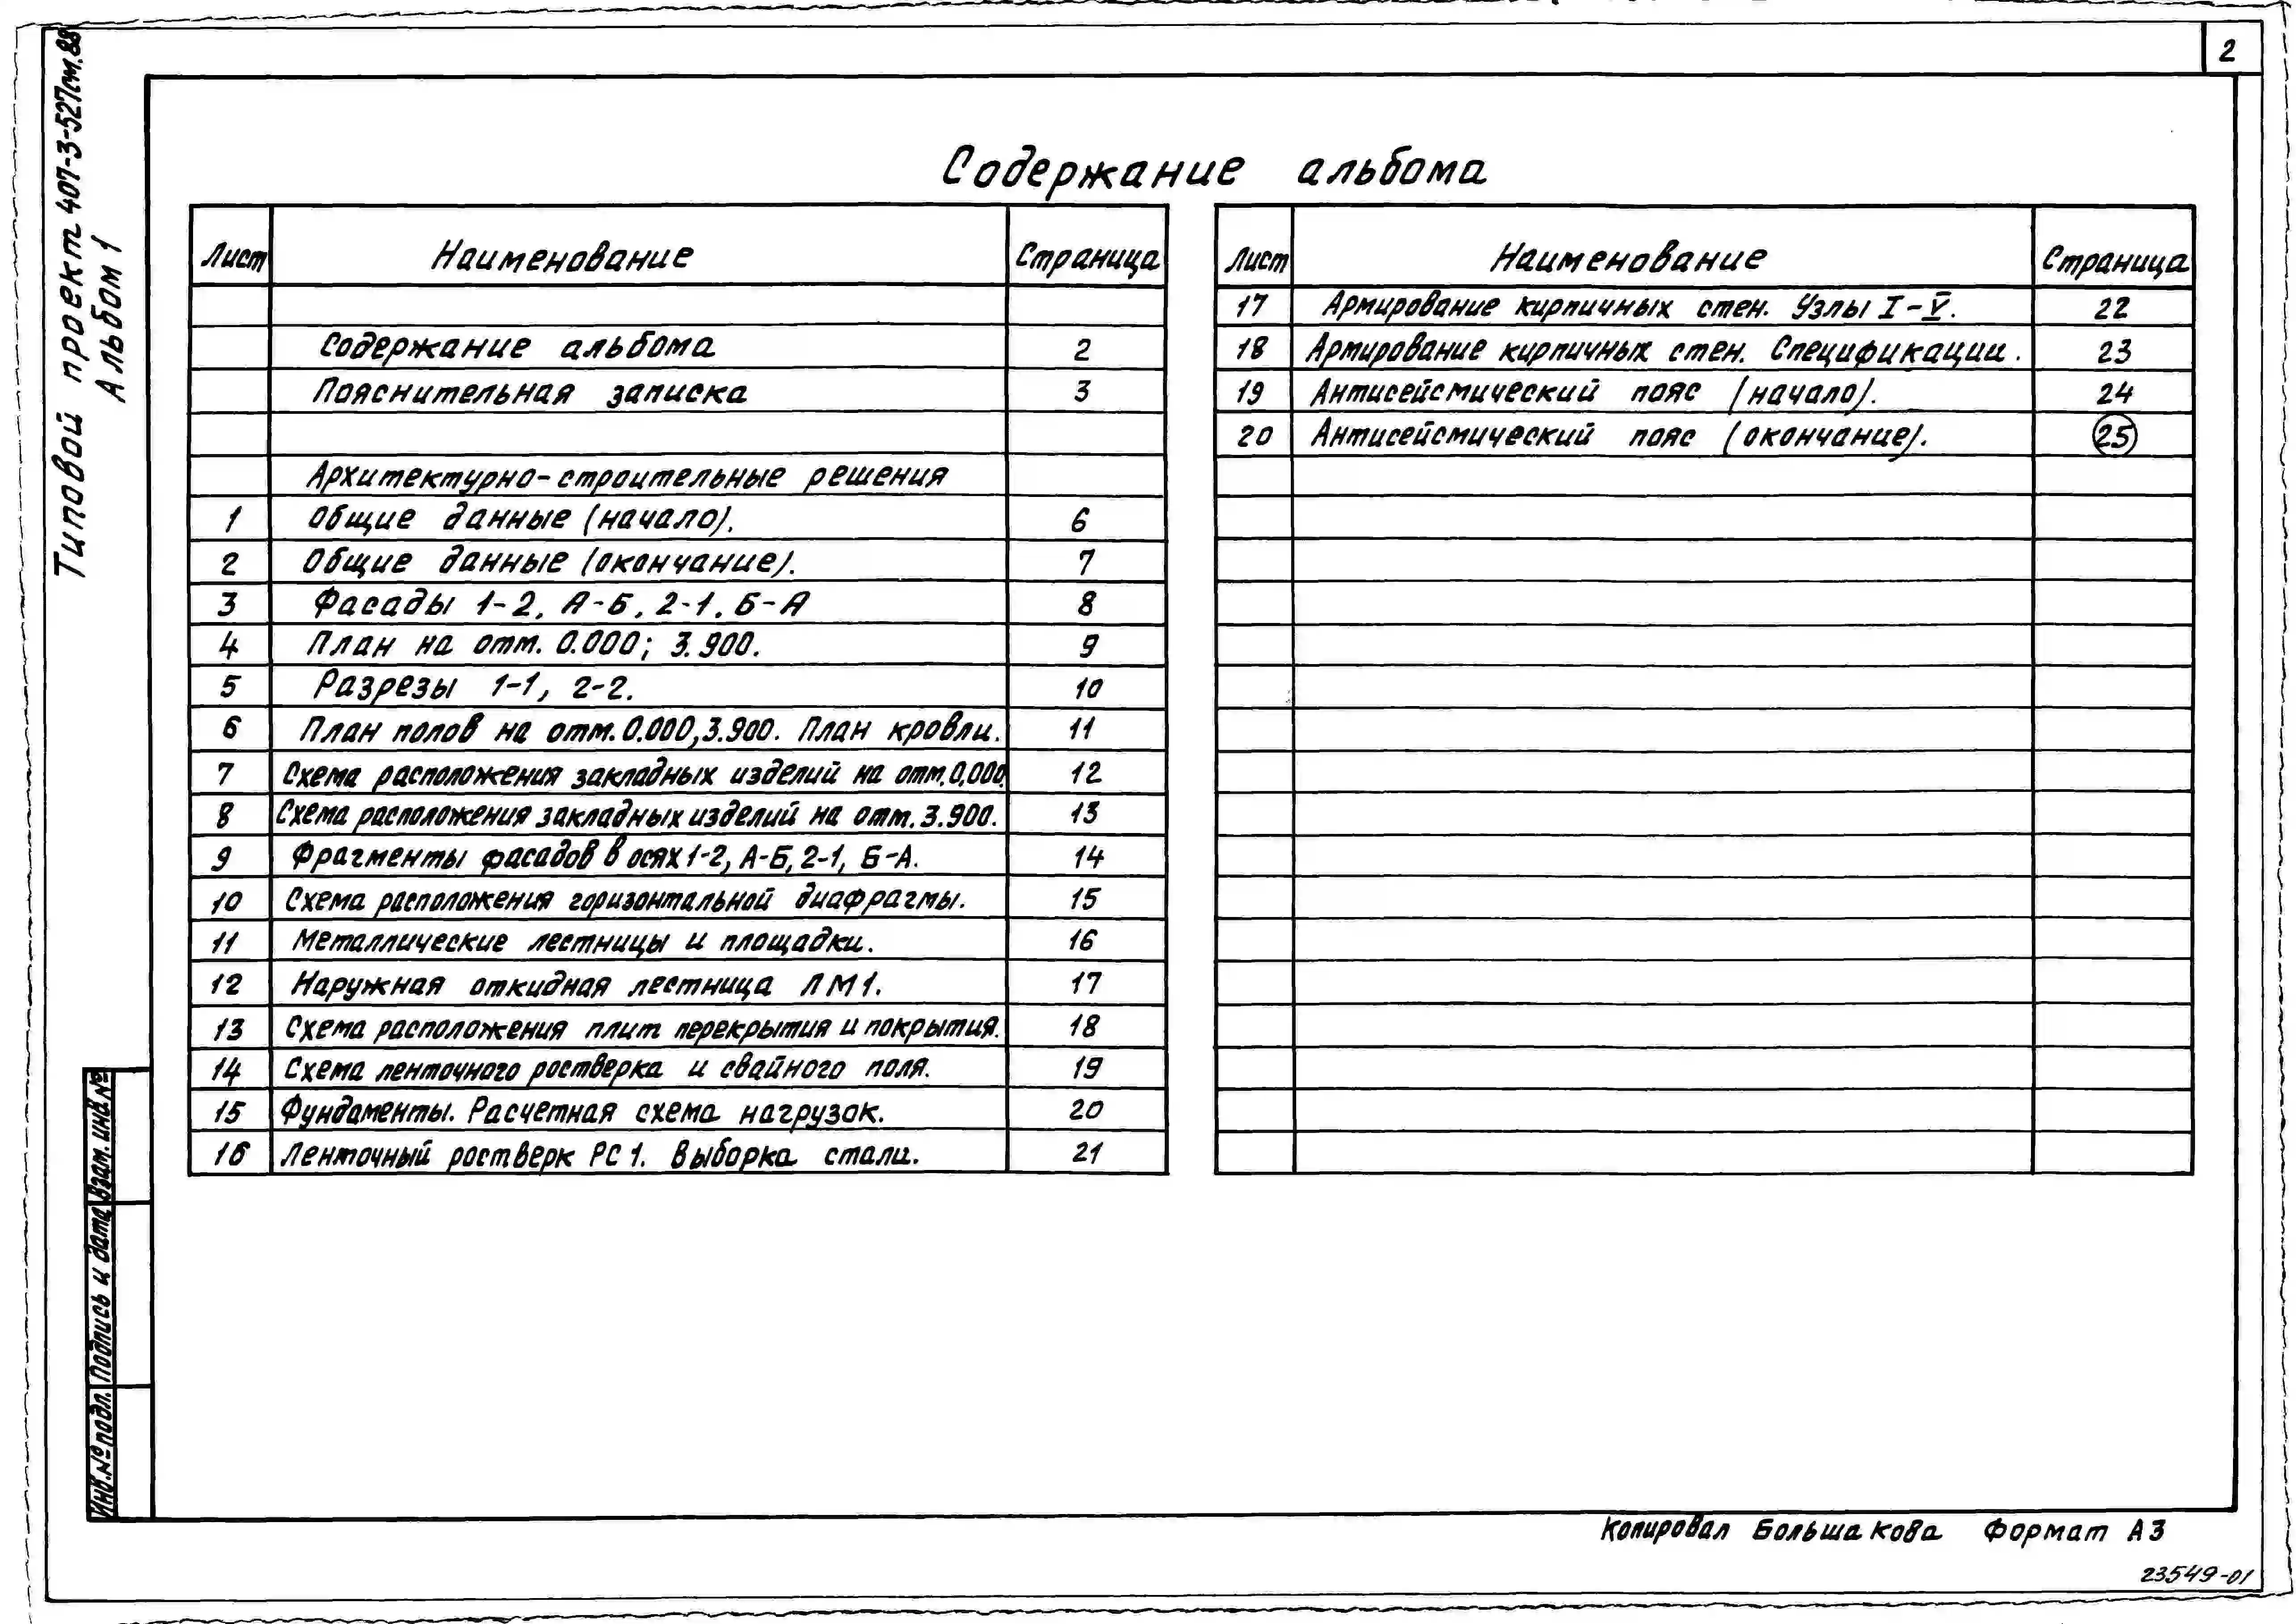 2
Типовой проект 407-3-527см.88
Альбом 1
Содержание альбома
Лист Наименование Страница
Содержание альбома 2
Пояснительная записка 3
Архитектурно-строительные решения
1 Общие данные (начало). 6
2 Общие данные (окончание). 7
3 Фасады 1-2, А-Б, 2-1, Б-А 8
4 План на отм. 0.000; 3.900. 9
5 Разрезы 1-1, 2-2. 10
6 План полов на отм. 0.000, 3.900. План кровли. 11
7 Схема расположения закладных изделий на отм. 0,000. 12
8 Схема расположения закладных изделий на отм. 3.900. 13
9 Фрагменты фасадов в осях 1-2, А-Б, 2-1, Б-А. 14
10 Схема расположения горизонтальной диафрагмы. 15
11 Металлические лестницы и площадки. 16
12 Наружная откидная лестница ЛМ1. 17
13 Схема расположения плит перекрытия и покрытия. 18
14 Схема ленточного ростверка и свайного поля. 19
15 Фундаменты. Расчетная схема нагрузок. 20
16 Ленточный ростверк РС1. Выборка стали. 21
Лист Наименование Страница
17 Армирование кирпичных стен. Узлы I-V. 22
18 Армирование кирпичных стен. Спецификации. 23
19 Антисейсмический пояс (начало). 24
20 Антисейсмический пояс (окончание). 25
Взам. инв.№
Подпись и дата
Инв.№ подл.
Копировал Большакова Формат А3
23549-01